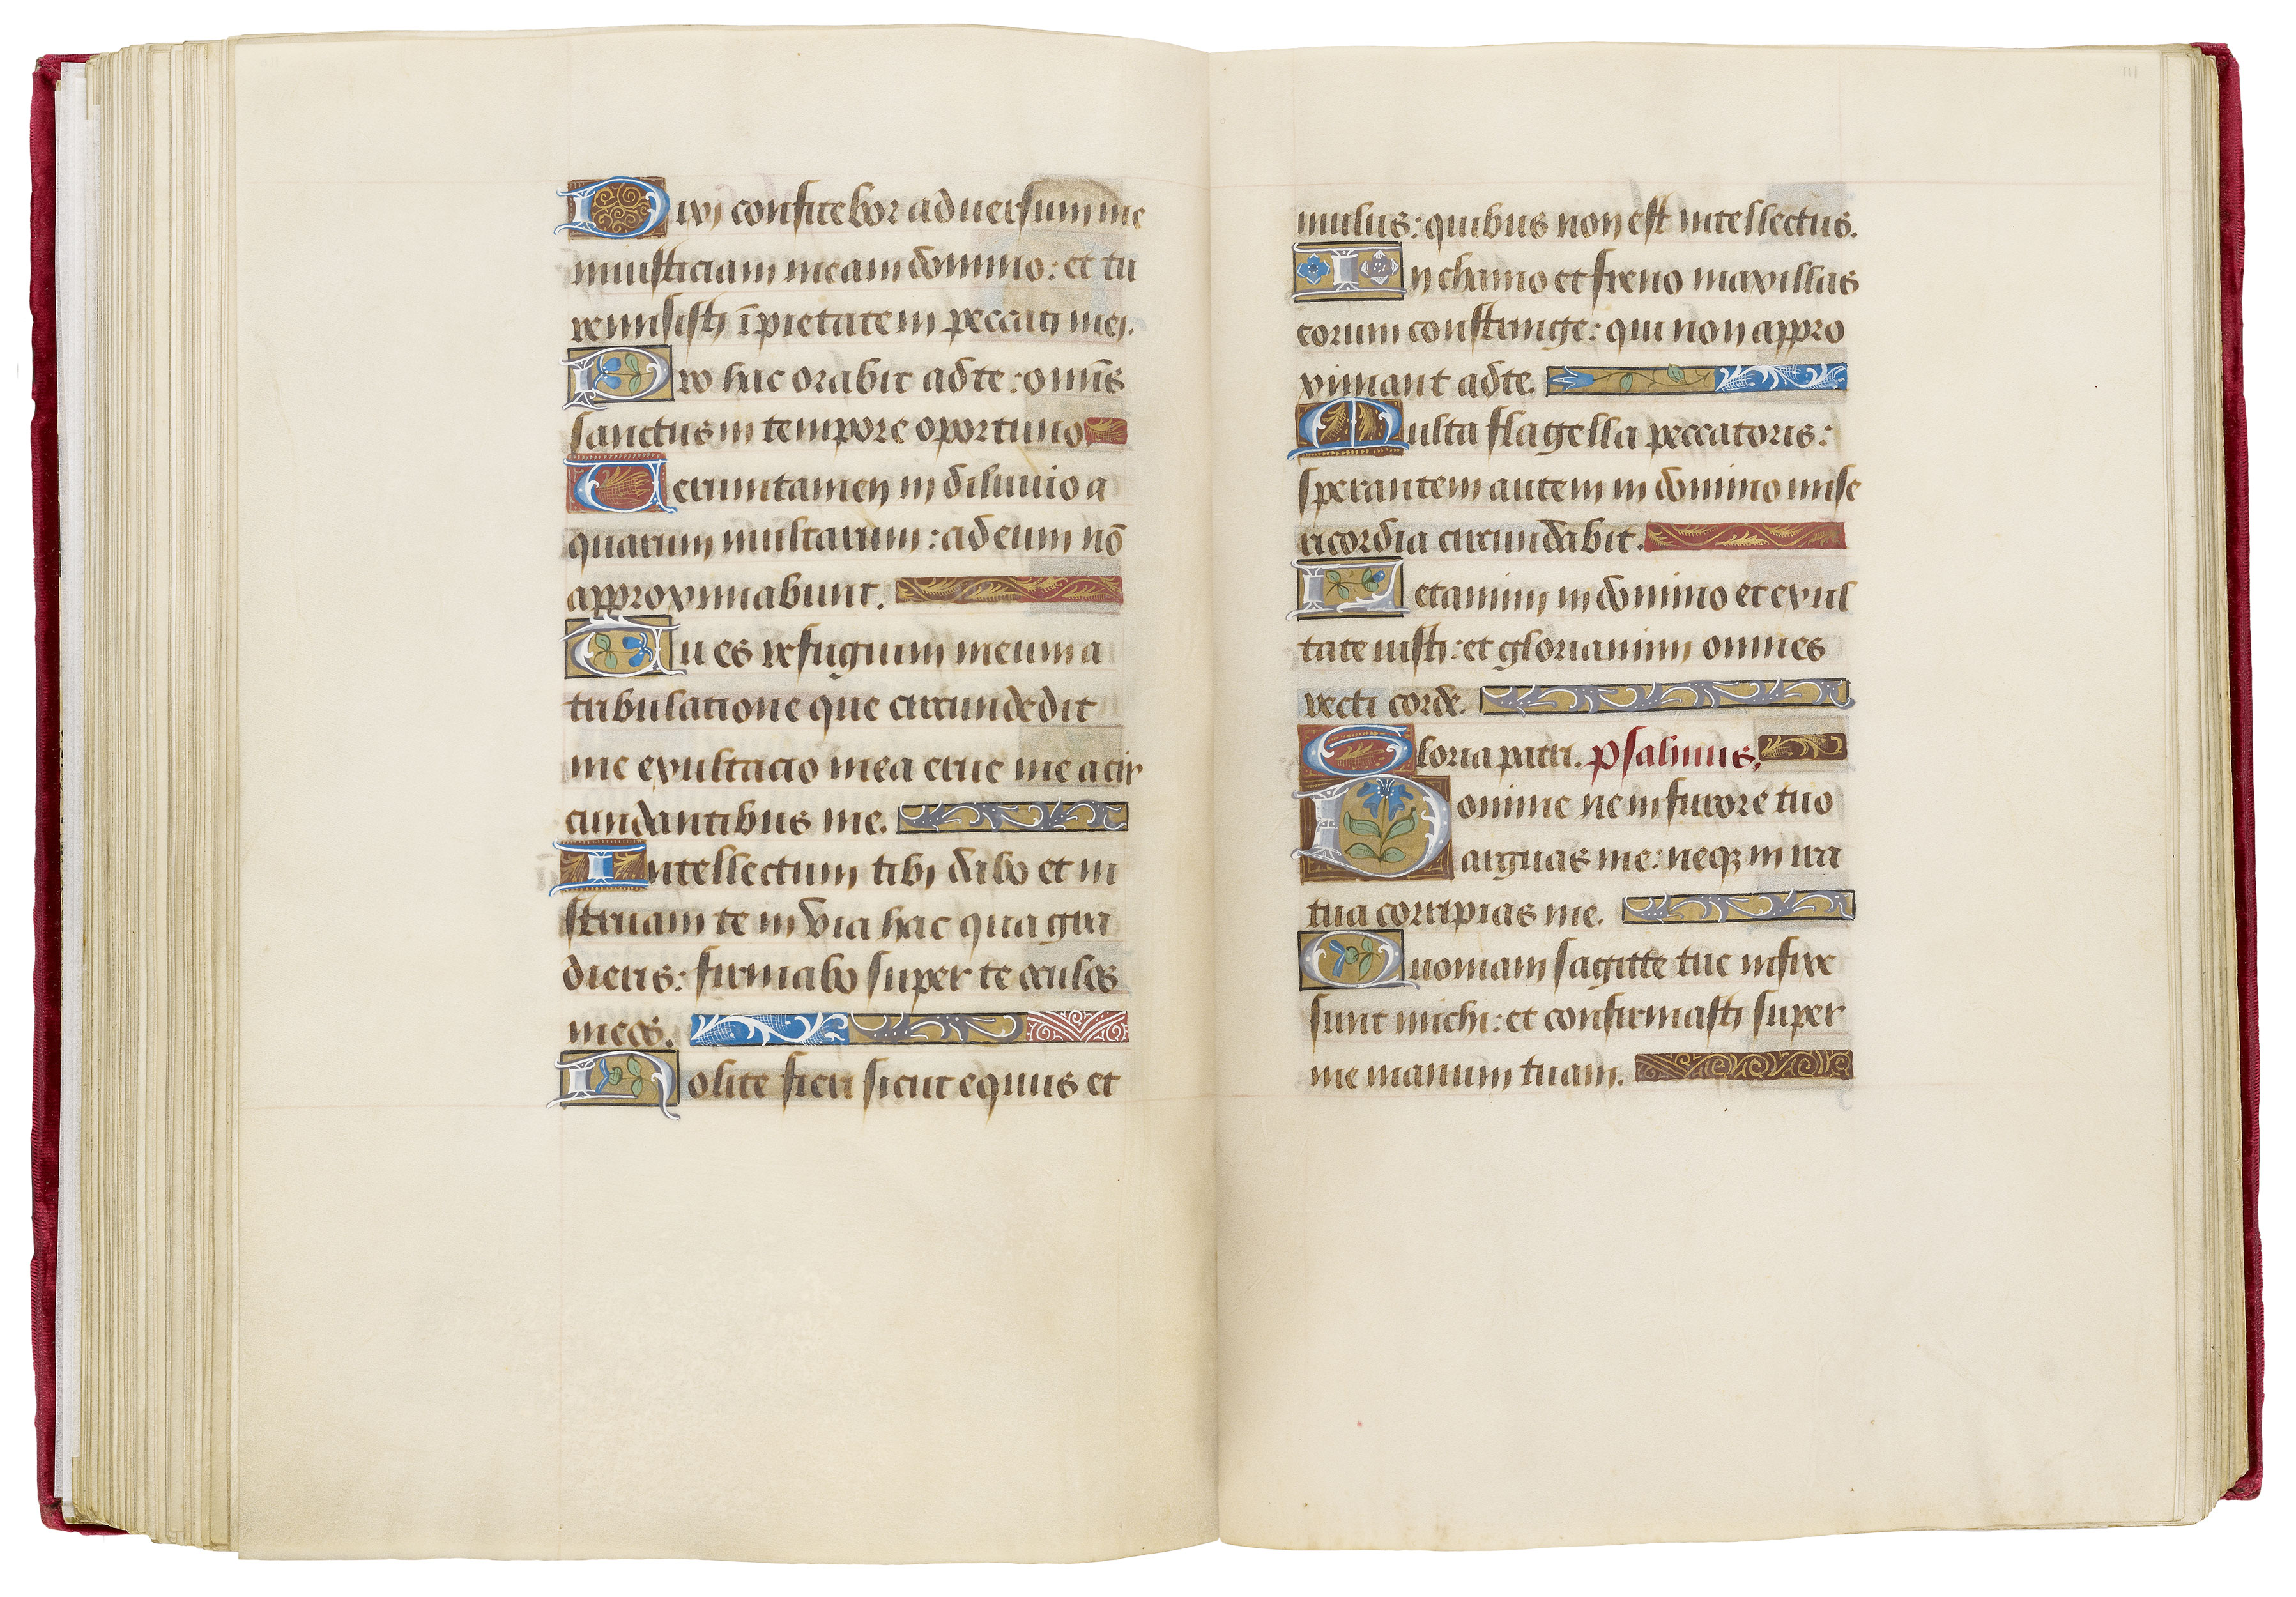 Dixi confitebor aduersum me
iniusticiam meam domino: et tu
remisisti īpietatem peccati mei.
Pro hac orabit ad te: om̄is
sanctus in tempore oportuno
Veruntamen in diluuio a
quarum multarum: ad eum nō
approximabunt.
Tu es refugium meum a
tribulatione que circundedit
me exultacio mea erue me a cir
cundantibus me.
Intellectum tibi dabo et in
struam te in via hac qua gra
dieris: firmabo super te oculos
meos.
Nolite fieri sicut equus et
111
mulus: quibus non est intellectus.
In chamo et freno maxillas
eorum constringe: qui non appro
ximant ad te.
Multa flagella peccatoris:
sperantem autem in domino mise
ricordia circundabit.
Letamini in domino et exul
tate iusti: et gloriamini omnes
recti corde.
Gloria patri. Psalmus.
Domine ne in furore tuo
arguas me: neqꝫ in ira
tua corripias me.
Quoniam sagitte tue infixe
sunt michi: et confirmasti super
me manum tuam.